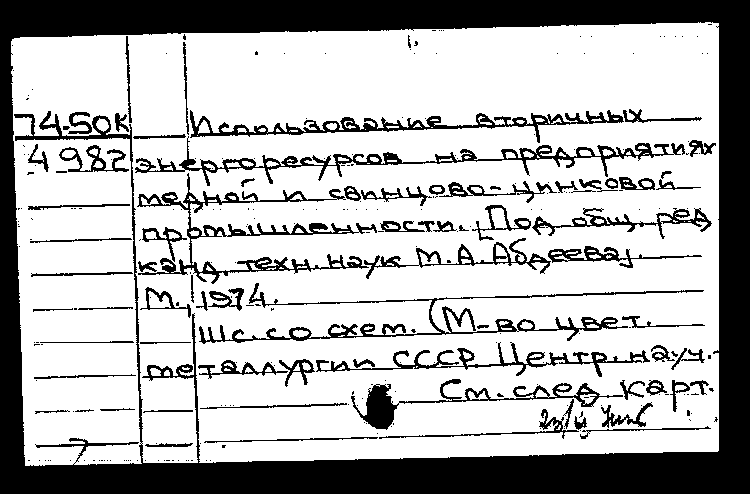 74-50К Использование вторичных
4982 энергоресурсов на предприятиях
медной и свинцово-цинковой
промышленности. [Под общ. ред
канд. техн. наук М.А. Абдеева].
М., 1974.
111с. со схем. (М-во цвет.
металлургии СССР Центр. науч.-
См. след карт.